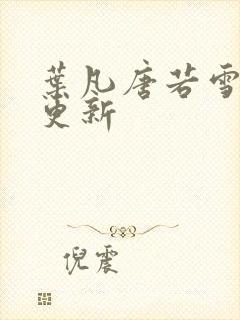 葉凡唐若雪
更新
倪震